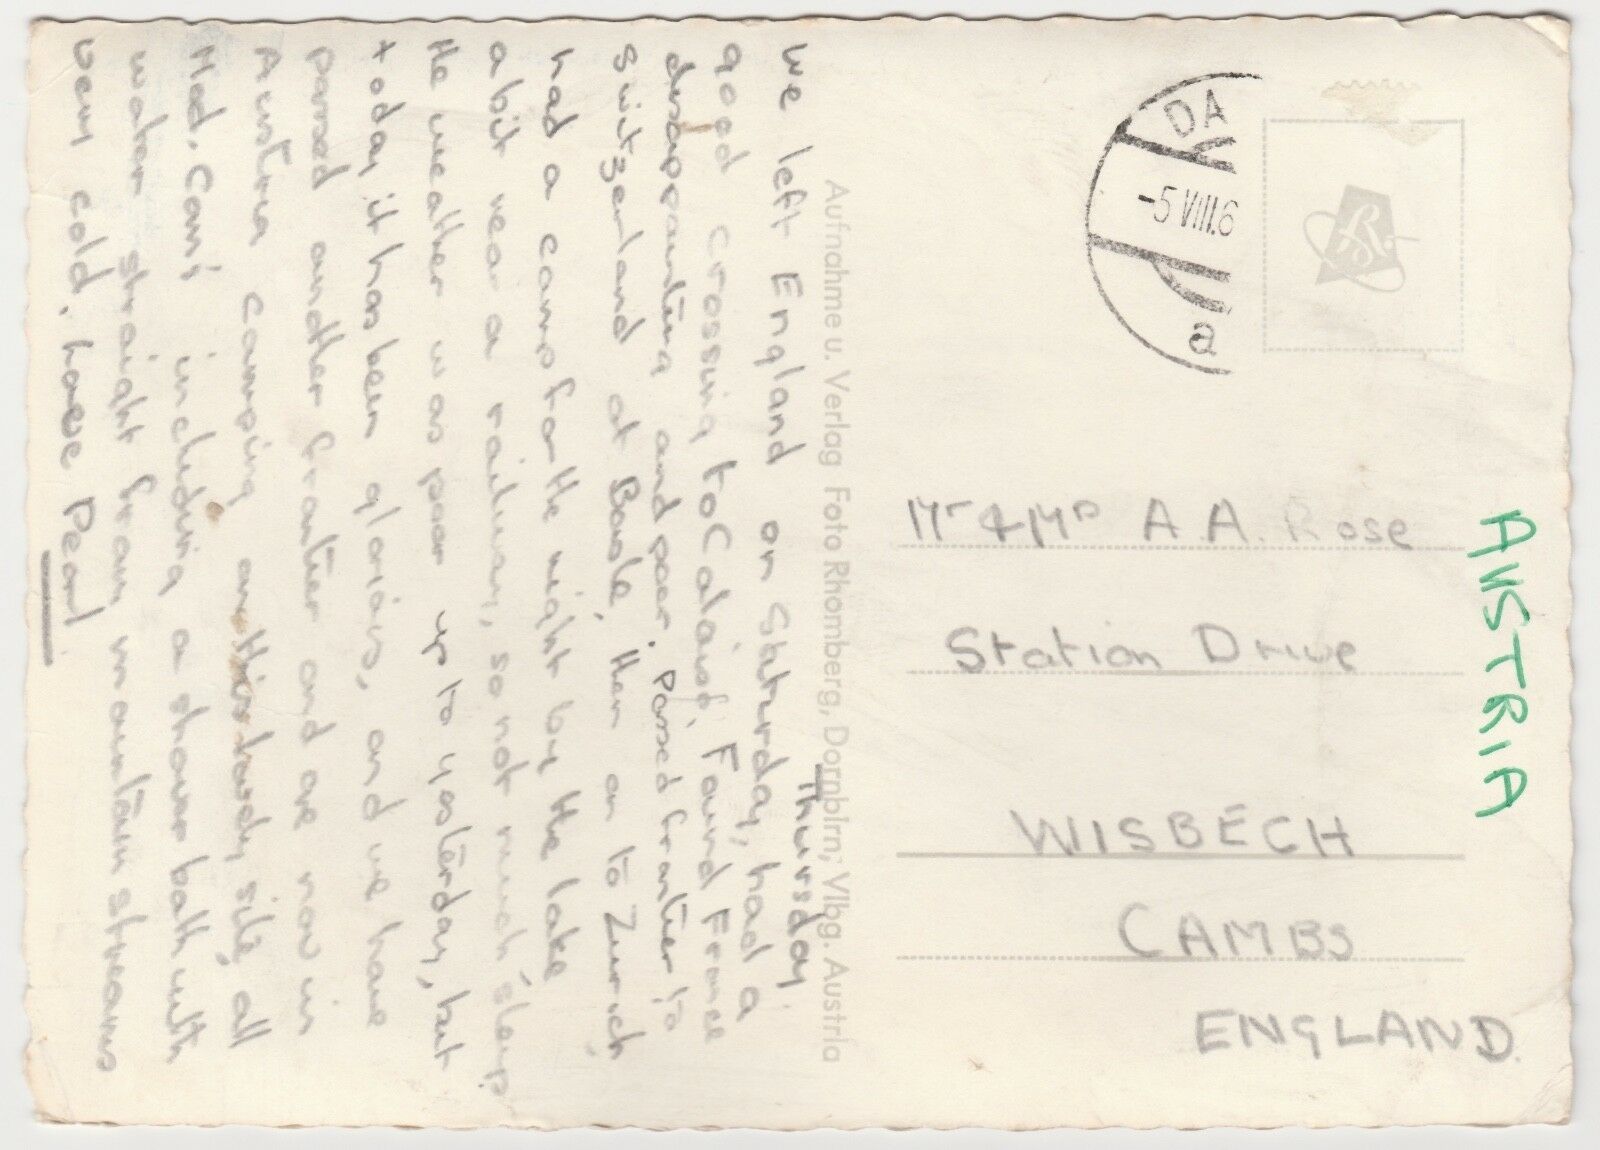 Thursday.
We left England on Saturday, had a
good crossing to Calais. Found France
disappointing and poor. Passed frontier to
Switzerland at Basle, then on to Zurich,
had a camp for the night by the lake
a bit near a railway, so not much sleep
the weather was poor up to yesterday, but
today it has been glorious, and we have
passed another frontier and are now in
Austria camping on this lovely site, all
Mod. Cons including a shower bath with
water straight from mountain streams
very cold. love Pearl
Aufnahme u. Verlag Foto Rhomberg, Dornbirn, Vlbg. Austria
DA
-5 VIII.6
a
Mr & Mrs A.A. Rose
Station Drive
WISBECH
CAMBS
ENGLAND.
AUSTRIA